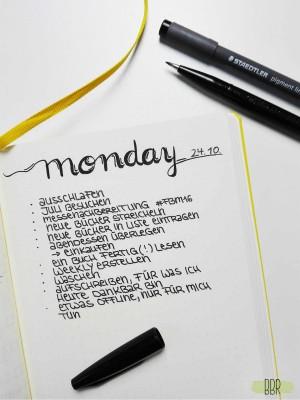 STAEDTLER pigment lin
monday 24.10.
· AUSSCHLAFEN
· JULI BESUCHEN
· MESSENACHBEREITUNG #FBM16
· NEUE BÜCHER STREICHELN
· NEUE BÜCHER IN LISTE EINTRAGEN
· ABENDESSEN ÜBERLEGEN
→ EINKAUFEN
· EIN BUCH FERTIG(!) LESEN
· WEEKLY ERSTELLEN
· WASCHEN
· AUFSCHREIBEN, FÜR WAS ICH
HEUTE DANKBAR BIN
· ETWAS OFFLINE, NUR FÜR MICH
TUN
BBR